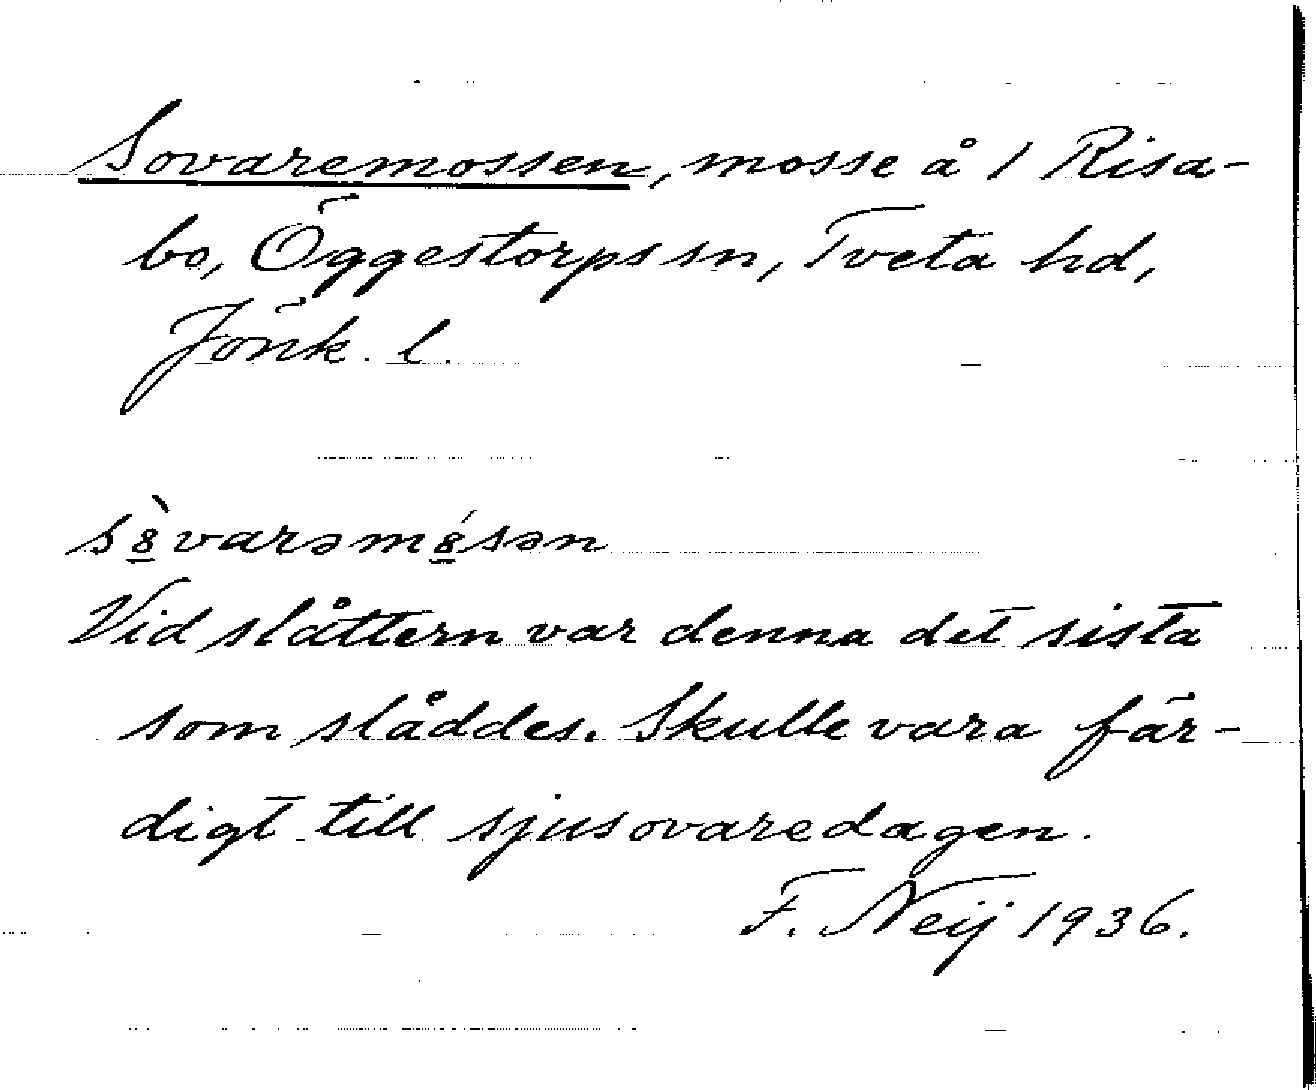 Sovaremossen, mosse å 1 Risa-
bo, Öggestorps sn, Tveta hd,
Jönk. l.
Vid slåttern var denna det sista
som slåddes. Skulle vara fär-
digt till sjusovaredagen.
F. Neij 1936.